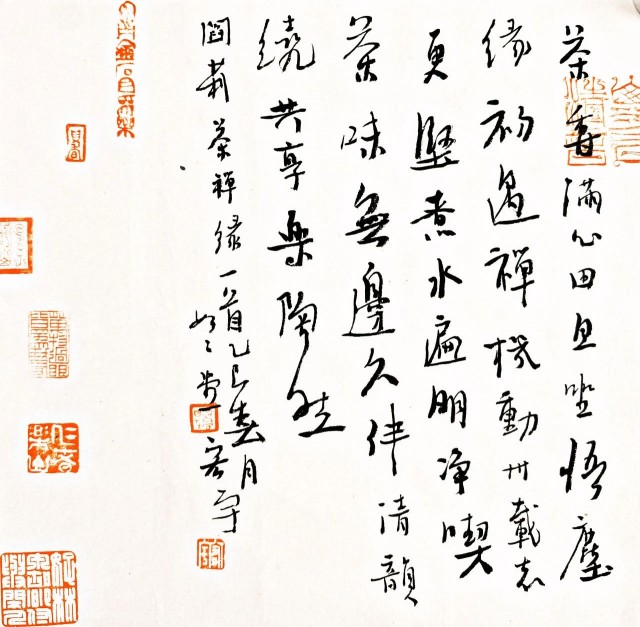 茶香滿心田且坐悟塵
緣初遇禪機動卅載志
更堅煮水遍明净喫
茶味無邊久伴清韻
繞共享樂陶然
閻莉茶禪緣一首乙巳春月